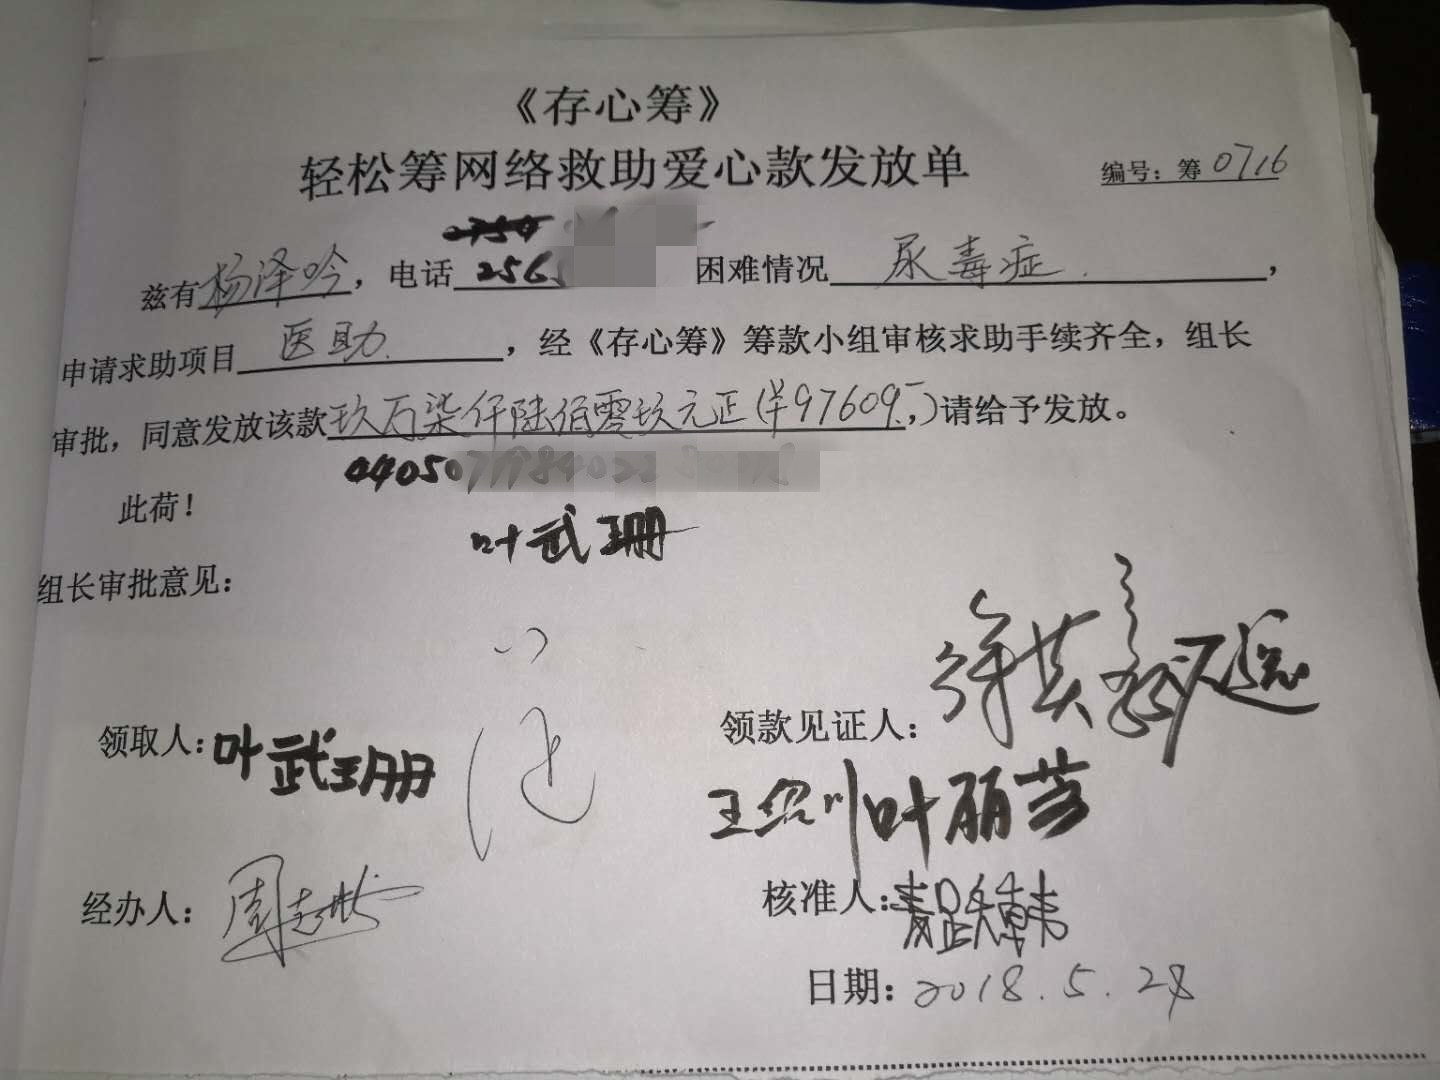 《存心筹》
轻松筹网络救助爱心款发放单
编号：筹0716
兹有杨泽吟，电话256 困难情况尿毒症，
申请求助项目医助，经《存心筹》筹款小组审核求助手续齐全，组长
审批，同意发放该款玖万柒仟陆佰零玖元正(¥97609，)请给予发放。
44050
此荷！
叶武珊
组长审批意见：
领取人：叶武珊
领款见证人：
王绍川 叶丽芬
经办人：周
核准人：
日期：2018.5.28